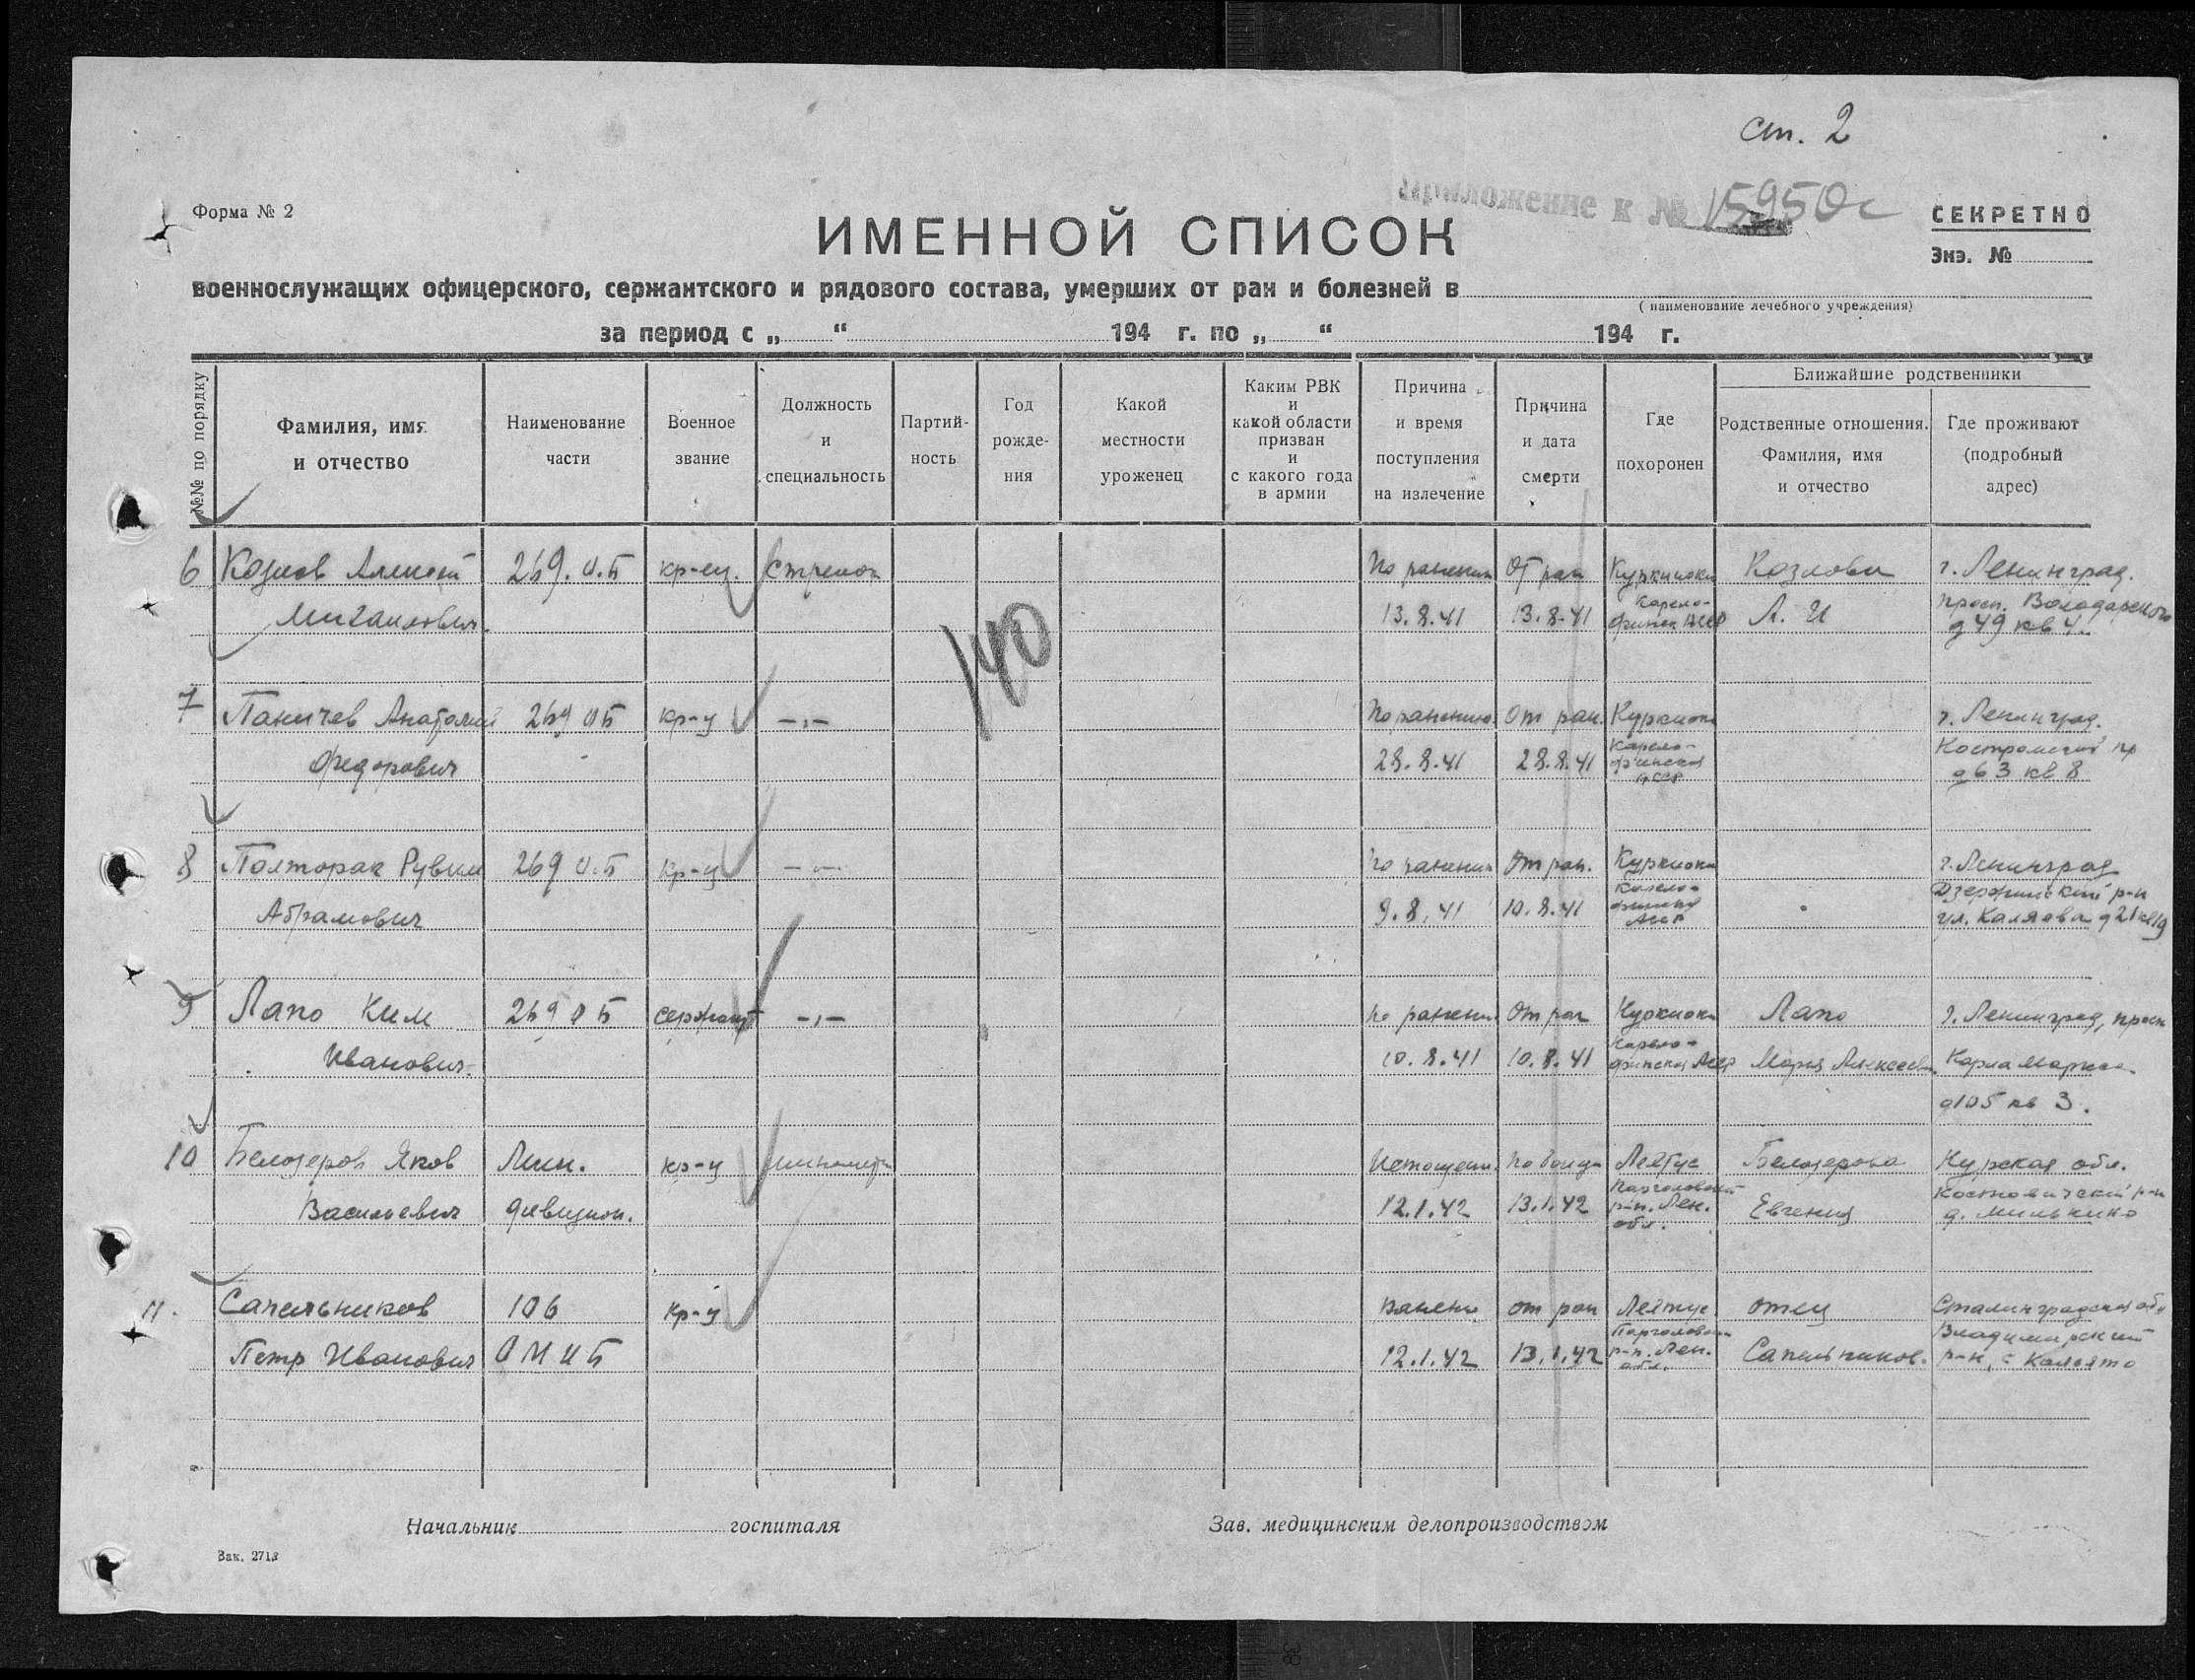 ст. 2
Приложение к № 15950с
Форма № 2
СЕКРЕТНО
ИМЕННОЙ СПИСОК
Экз. №
военнослужащих офицерского, сержантского и рядового состава, умерших от ран и болезней в
( наименование лечебного учреждения)
за период с „ “ 194 г. по „ “ 194 г.
№№ по порядку
Фамилия, имя и отчество
Наименование части
Военное звание
Должность и специальность
Партий-ность
Год рожде-ния
Какой местности уроженец
Каким РВК и какой области призван и с какого года в армии
Причина и время поступления на излечение
Причина и дата смерти
Где похоронен
Ближайшие родственники
Родственные отношения. Фамилия, имя и отчество
Где проживают (подробный адрес)
6 Козлов Алексей 269. О.Б кр-ец. Стрелок По ранению От ран Куркиоки Козлова г. Ленинград.
Михайлович. 13.8.41 13.8.41 Карело-финск АССР Л. И просп. Володарского д 49 кв 4.
140
7 Паничев Анатолий 269 ОБ кр-ц —„— По ранению От ран. Куркиоки г. Ленинград.
Федорович 28.8.41 28.8.41 Карело-финской АССР Костромской пр д 63 кв 8
8 Полторак Рувим 269 О.Б кр-ц —„— По ранению От ран. Куркиоки г. Ленинград
Абрамович 9.8.41 10.8.41 Карело-финской АССР Дзержинский р-н ул. Каляева д 21 кв 19
9 Лапо Ким 269 ОБ сержант —„— По ранению От ран Куркиоки Лапо г. Ленинград, просп
Иванович. 10.8.41 10.8.41 Карело-финской АССР Мария Алексеевн. Карла Маркса
д 105 кв 3.
10 Белозеров Яков Мин. кр-ц минометч Истощени. Лейтус Белозерова Курская обл.
Васильевич дивизион. 12.1.42 13.1.42 Парголовский р-н. Лен. обл. Евгения р-н д.
11. Сапельников 106 кр-ц ранени от ран Лейтус отец Сталинградская обл
Петр Иванович ОМИБ 12.1.42 13.1.42 Парголовский р-н. Лен. обл. Сапельников. Владимирский р-н, с
Начальник госпиталя
Зав. медицинским делопроизводством
Зак. 2713